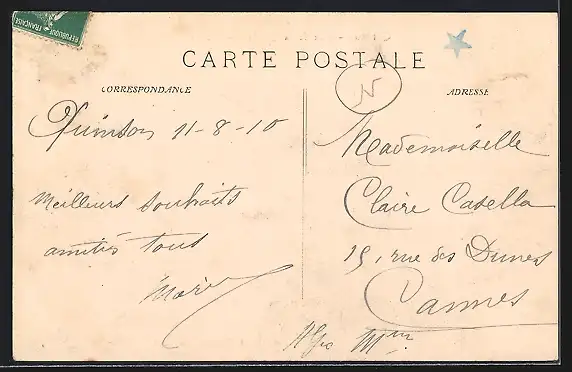 REPUBLIQUE FRANÇAISE
CARTE POSTALE
CORRESPONDANCE
ADRESSE
N
Quinson 11-8-10
Meilleurs souhaits
amitiés tous
Marie
Mademoiselle
Claire Casella
15, rue des Dunes
Cannes
Alpes Mmes